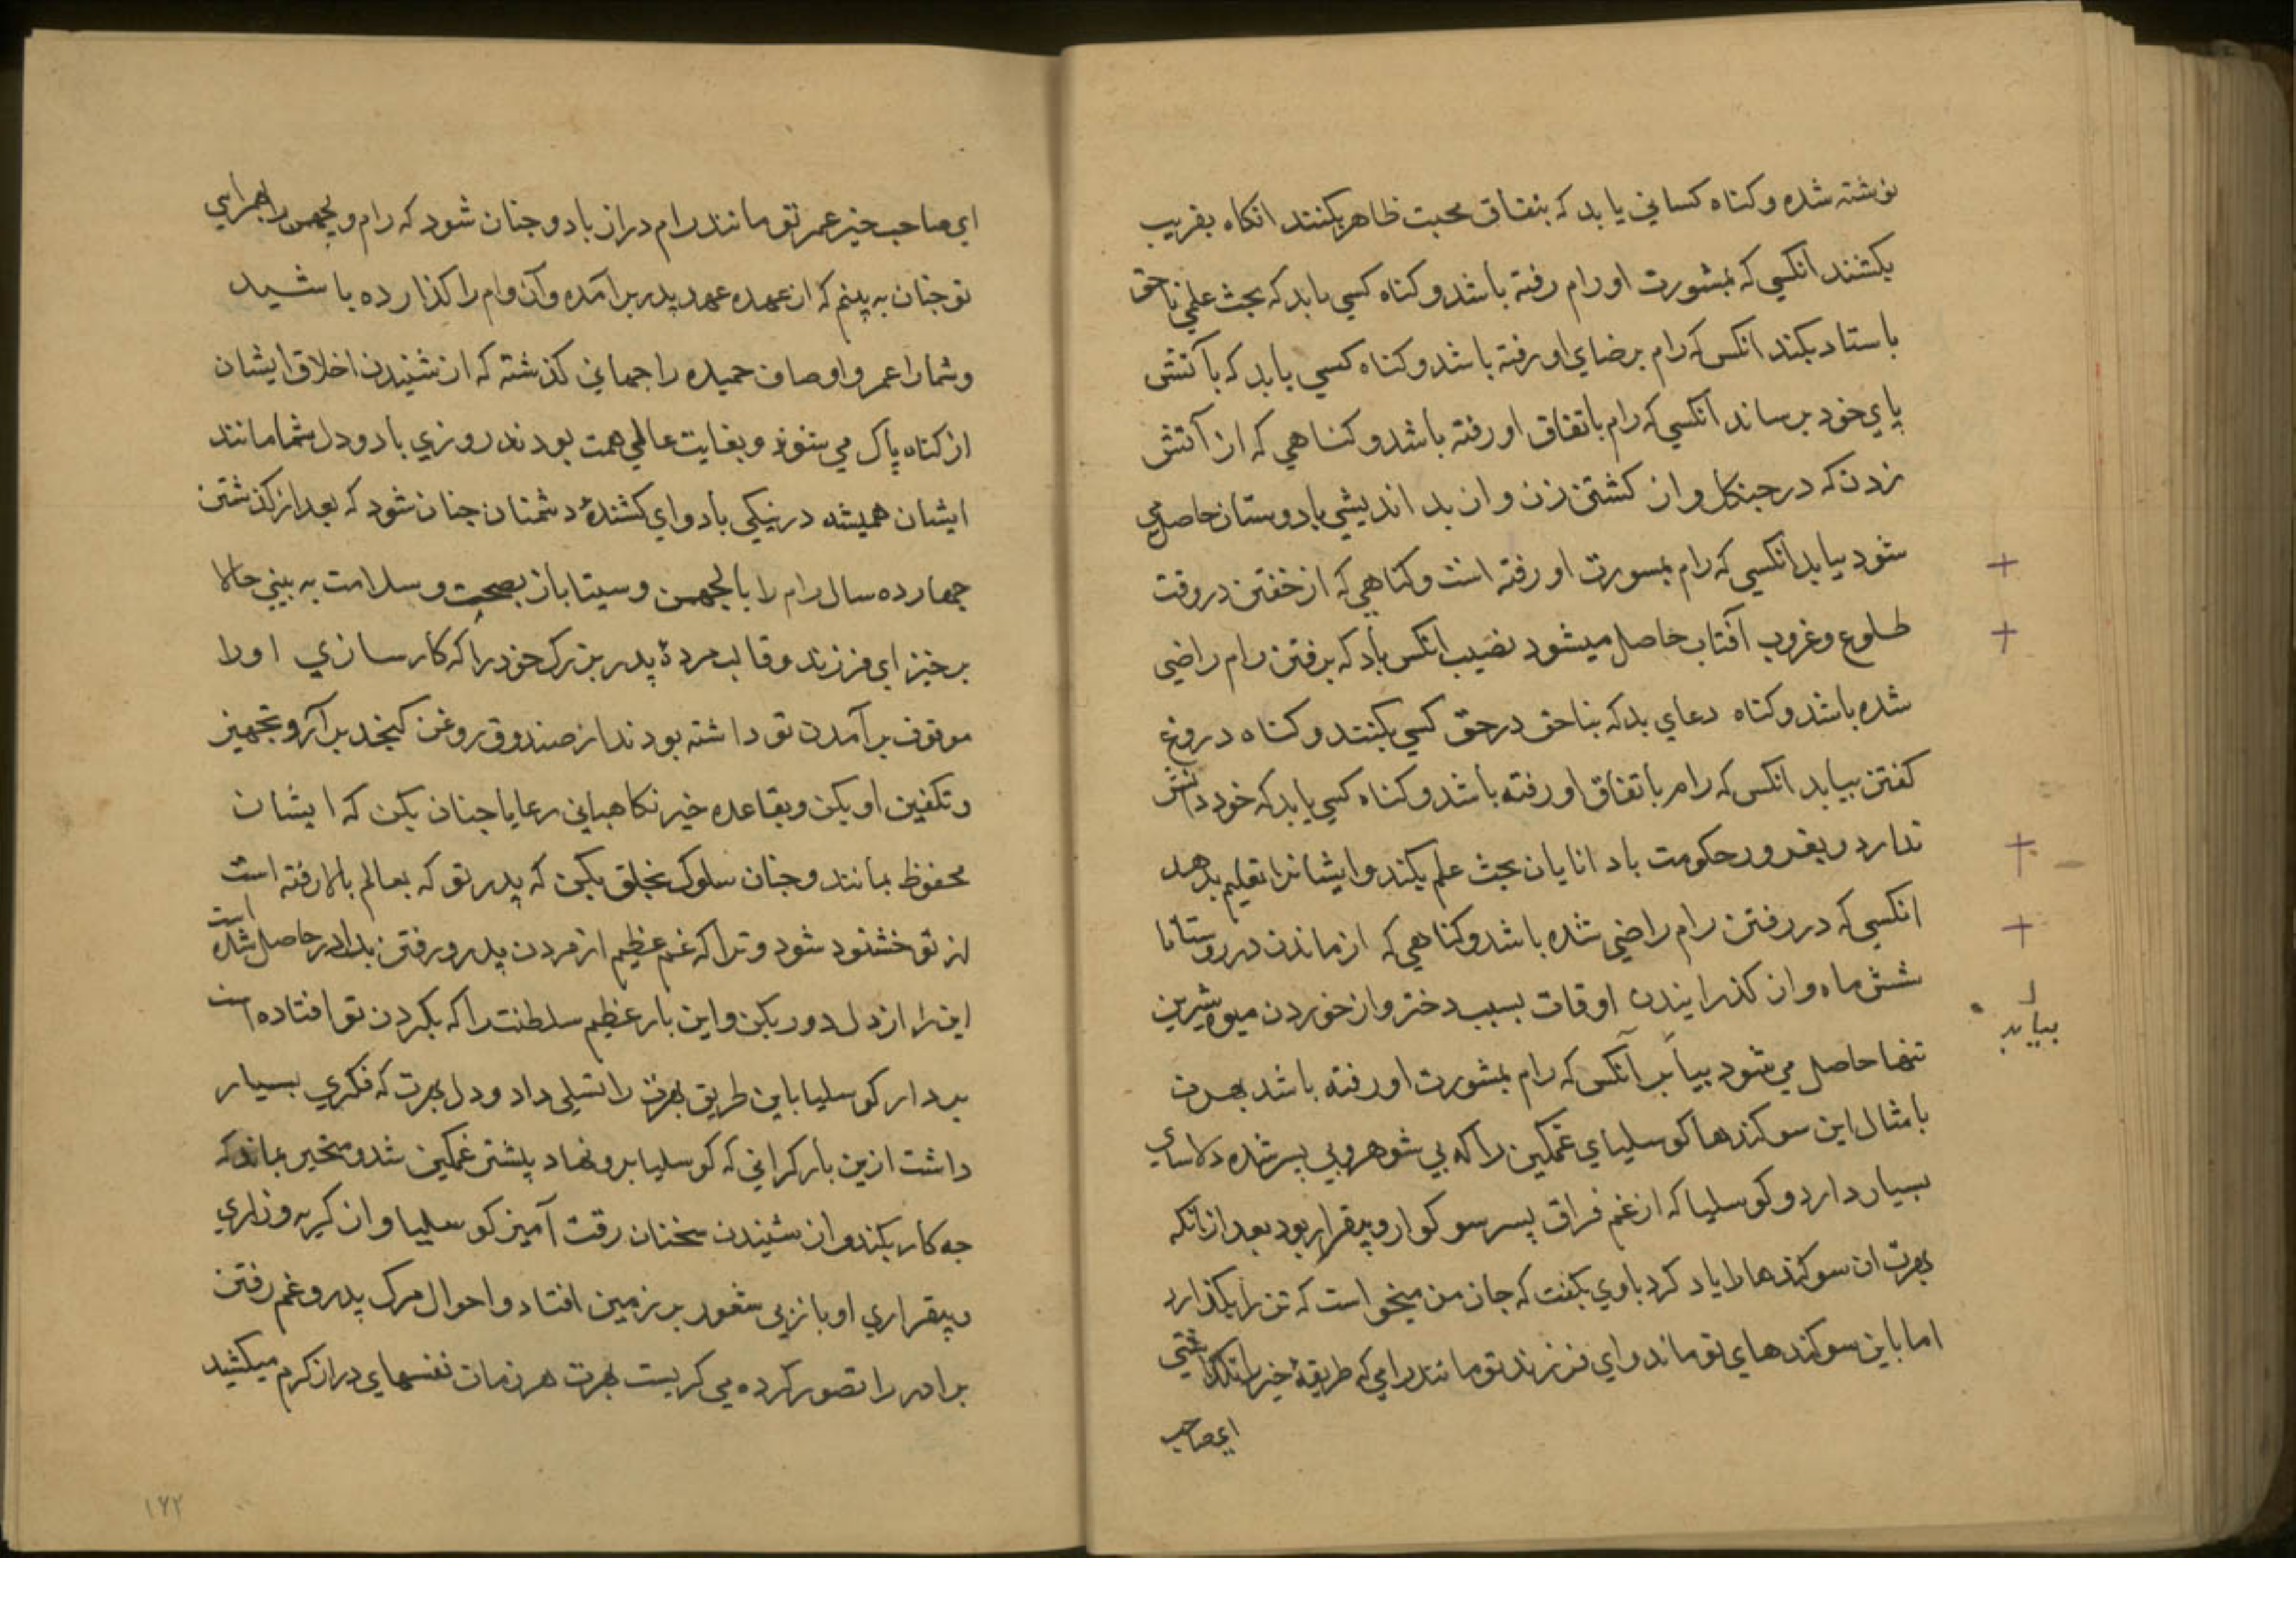 نوشته شده و کناه کساني يابد که بنفاق محبت ظاهر بکنند انکاه بفريب
بکشند انکسي که بمشورت او رام رفته باشد و کناه کسي يابد که بحث علمي ناحق
باستاد بکند انکس که رام برضاي او رفته باشد و کناه کسي يابد که باکتش
پاي خود برساند انکسي که رام باتفاق او رفته باشد و کناهي که از آتش
زدن که در جنکل و از کشتن زن و از بد انديشي بادوستان حاصل مي
شود بيابد انکسي که رام بمسورت او رفته است و کناهي که از خفتن در وقت
طلوع و غروب آفتاب حاصل ميشود نصيب انکس باد که برفتن رام راضي
شده باشد و کناه دعاي بد که بناحق در حق کسي بکنند و کناه دروغ
کفتن بيابد انکس که رام باتفاق او رفته باشد و کناه کسي يابد که خود دانش
ندارد و بغرور حکومت بادانايان بحث علم بکند و ايشانرا تعليم بدهد
انکسي که در رفتن رام راضي شده باشد و کناهي که از ماندن در روستاها
شش ماه و از کذرانيدن اوقات بسبب دختر و از خوردن ميوه شيرين
بيابد
تنها حاصل مي شود بيابد آنکس که رام بمشورت او رفته باشد بهرت
بامثال اين سوکندها کوسلياي غمکين را که بي شوهر و بي پسر شده دلاساي
بسيار داد و کوسليا که از غم فراق پسر سوکوار و بيقرار بود بعد از آنکه
بهرت ان سوکندها را ياد کرد باوي بکفت که جان من ميخواست که تن را بکذارد
اما باين سوکندهاي تو ماند و اي فرزند تو مانند رامي که طريقهٔ خير را نکذاشتي
ايصاحب
اي صاحب خير عمر تو مانند رام دراز باد و چنان شود که رام و لچهمن را همراهي
تو چنان به بينم که از عهده عهد پدر برآمده و آن وام را کذارده باشيد
و شما را عمر و اوصاف حميده راجهاني کذشته که از شنيدن اخلاق ايشان
از کناه پاک مي شوند و بغايت عالي همت بودند روزي باد و دل شما مانند
ايشان هميشه در نيکي باد و اي کشندهٔ دشمنان چنان شود که بعد از کذشتن
چهارده سال رام را با لچهمن و سيتا باز بصحت و سلامت به بيني حالا
برخيز اي فرزند و قالب مردهٔ پدر بزرک خود را که کارسازي او را
موقوف برآمدن تو داشته بودند از صندوق روغن کنجد برآر و تجهيز
و تکفين او بکن و بقاعده خير نکاهباني رعايا چنان بکن که ايشان
محفوظ بمانند و چنان سلوک بخلق بکن که پدر تو که بعالم بالا رفته است
از تو خشنود شود و ترا که غم عظيم از مردن پدر و رفتن برادر حاصل شده است
اين را از دل دور بکن و اين بار عظيم سلطنت را که بکردن تو افتاده است
بردار کوسليا باين طريق بهرت را تسلي داد و دل بهرت که فکري بسيار
داشت ازين بار کراني که کوسليا برو نهاد پيشتر غمکين شد و متحير بماند که
چه کار بکند و از شنيدن سخنان رقت آميز کوسليا و از کريه و زاري
و بيقراري او باز بي شعور بر زمين افتاد و احوال مرک پدر و غم رفتن
برادر را تصور کرده مي کريست بهرت هر زمان نفسهاي دراز کرم ميکشيد
۱۶۲